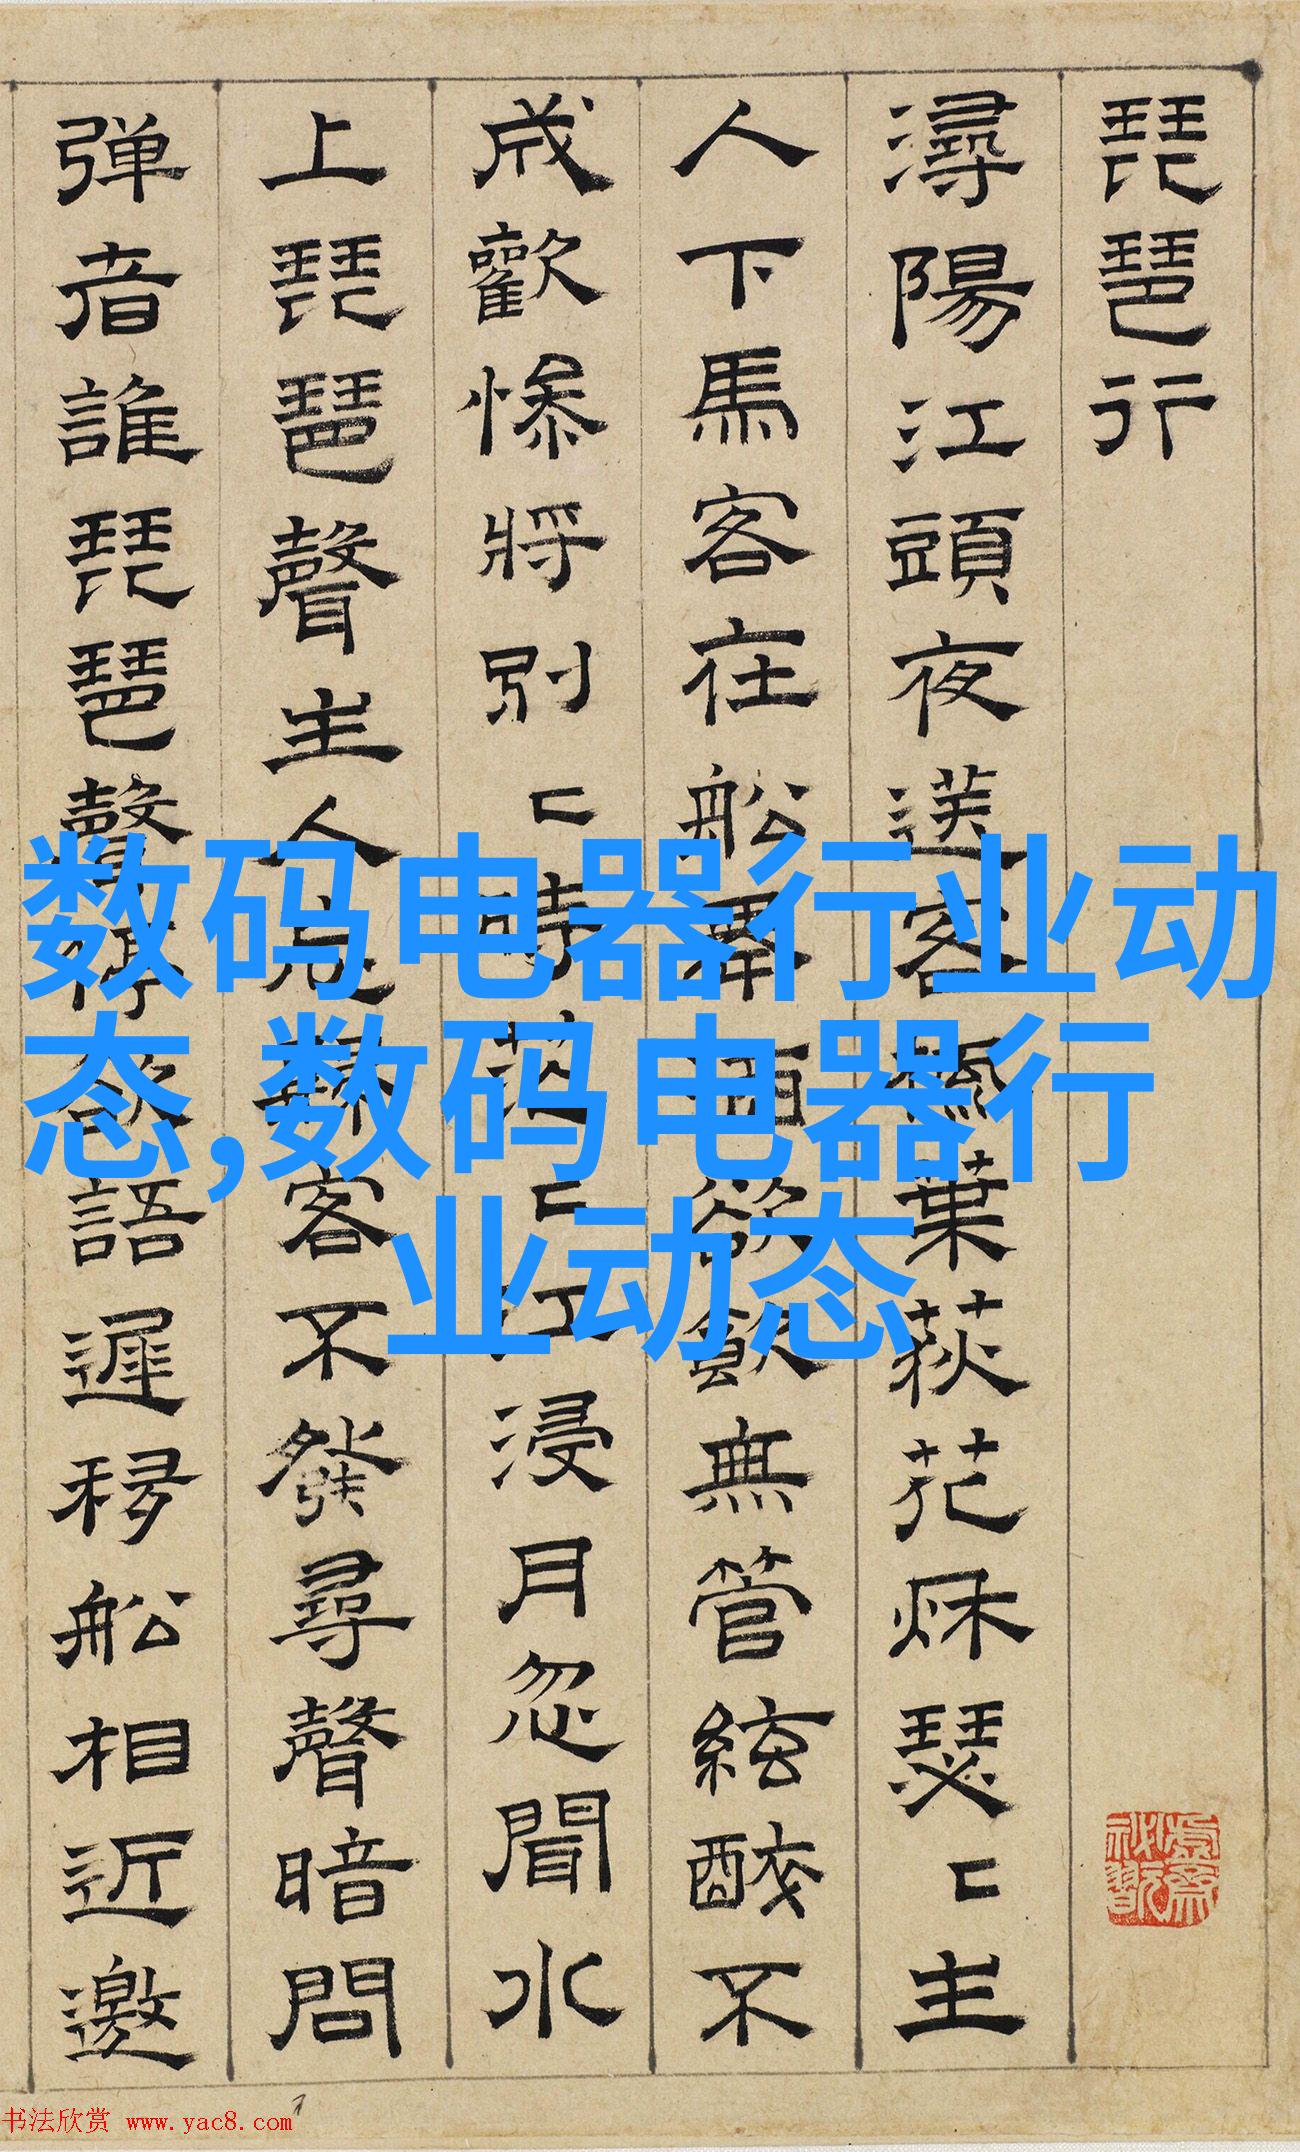 琵琶行
潯陽江頭夜送客楓葉荻花秌瑟〻主
人下馬客在船舉酒欲飲無管絃醉不
成歡慘將別〻時茫〻江浸月忽聞水
上琵琶聲主人忘歸客不發尋聲暗問
弹者誰琵琶聲停欲語遲移船相近邀
数码电器行业动
态,数码电器行
业动态
书法欣赏 www.yac8.com